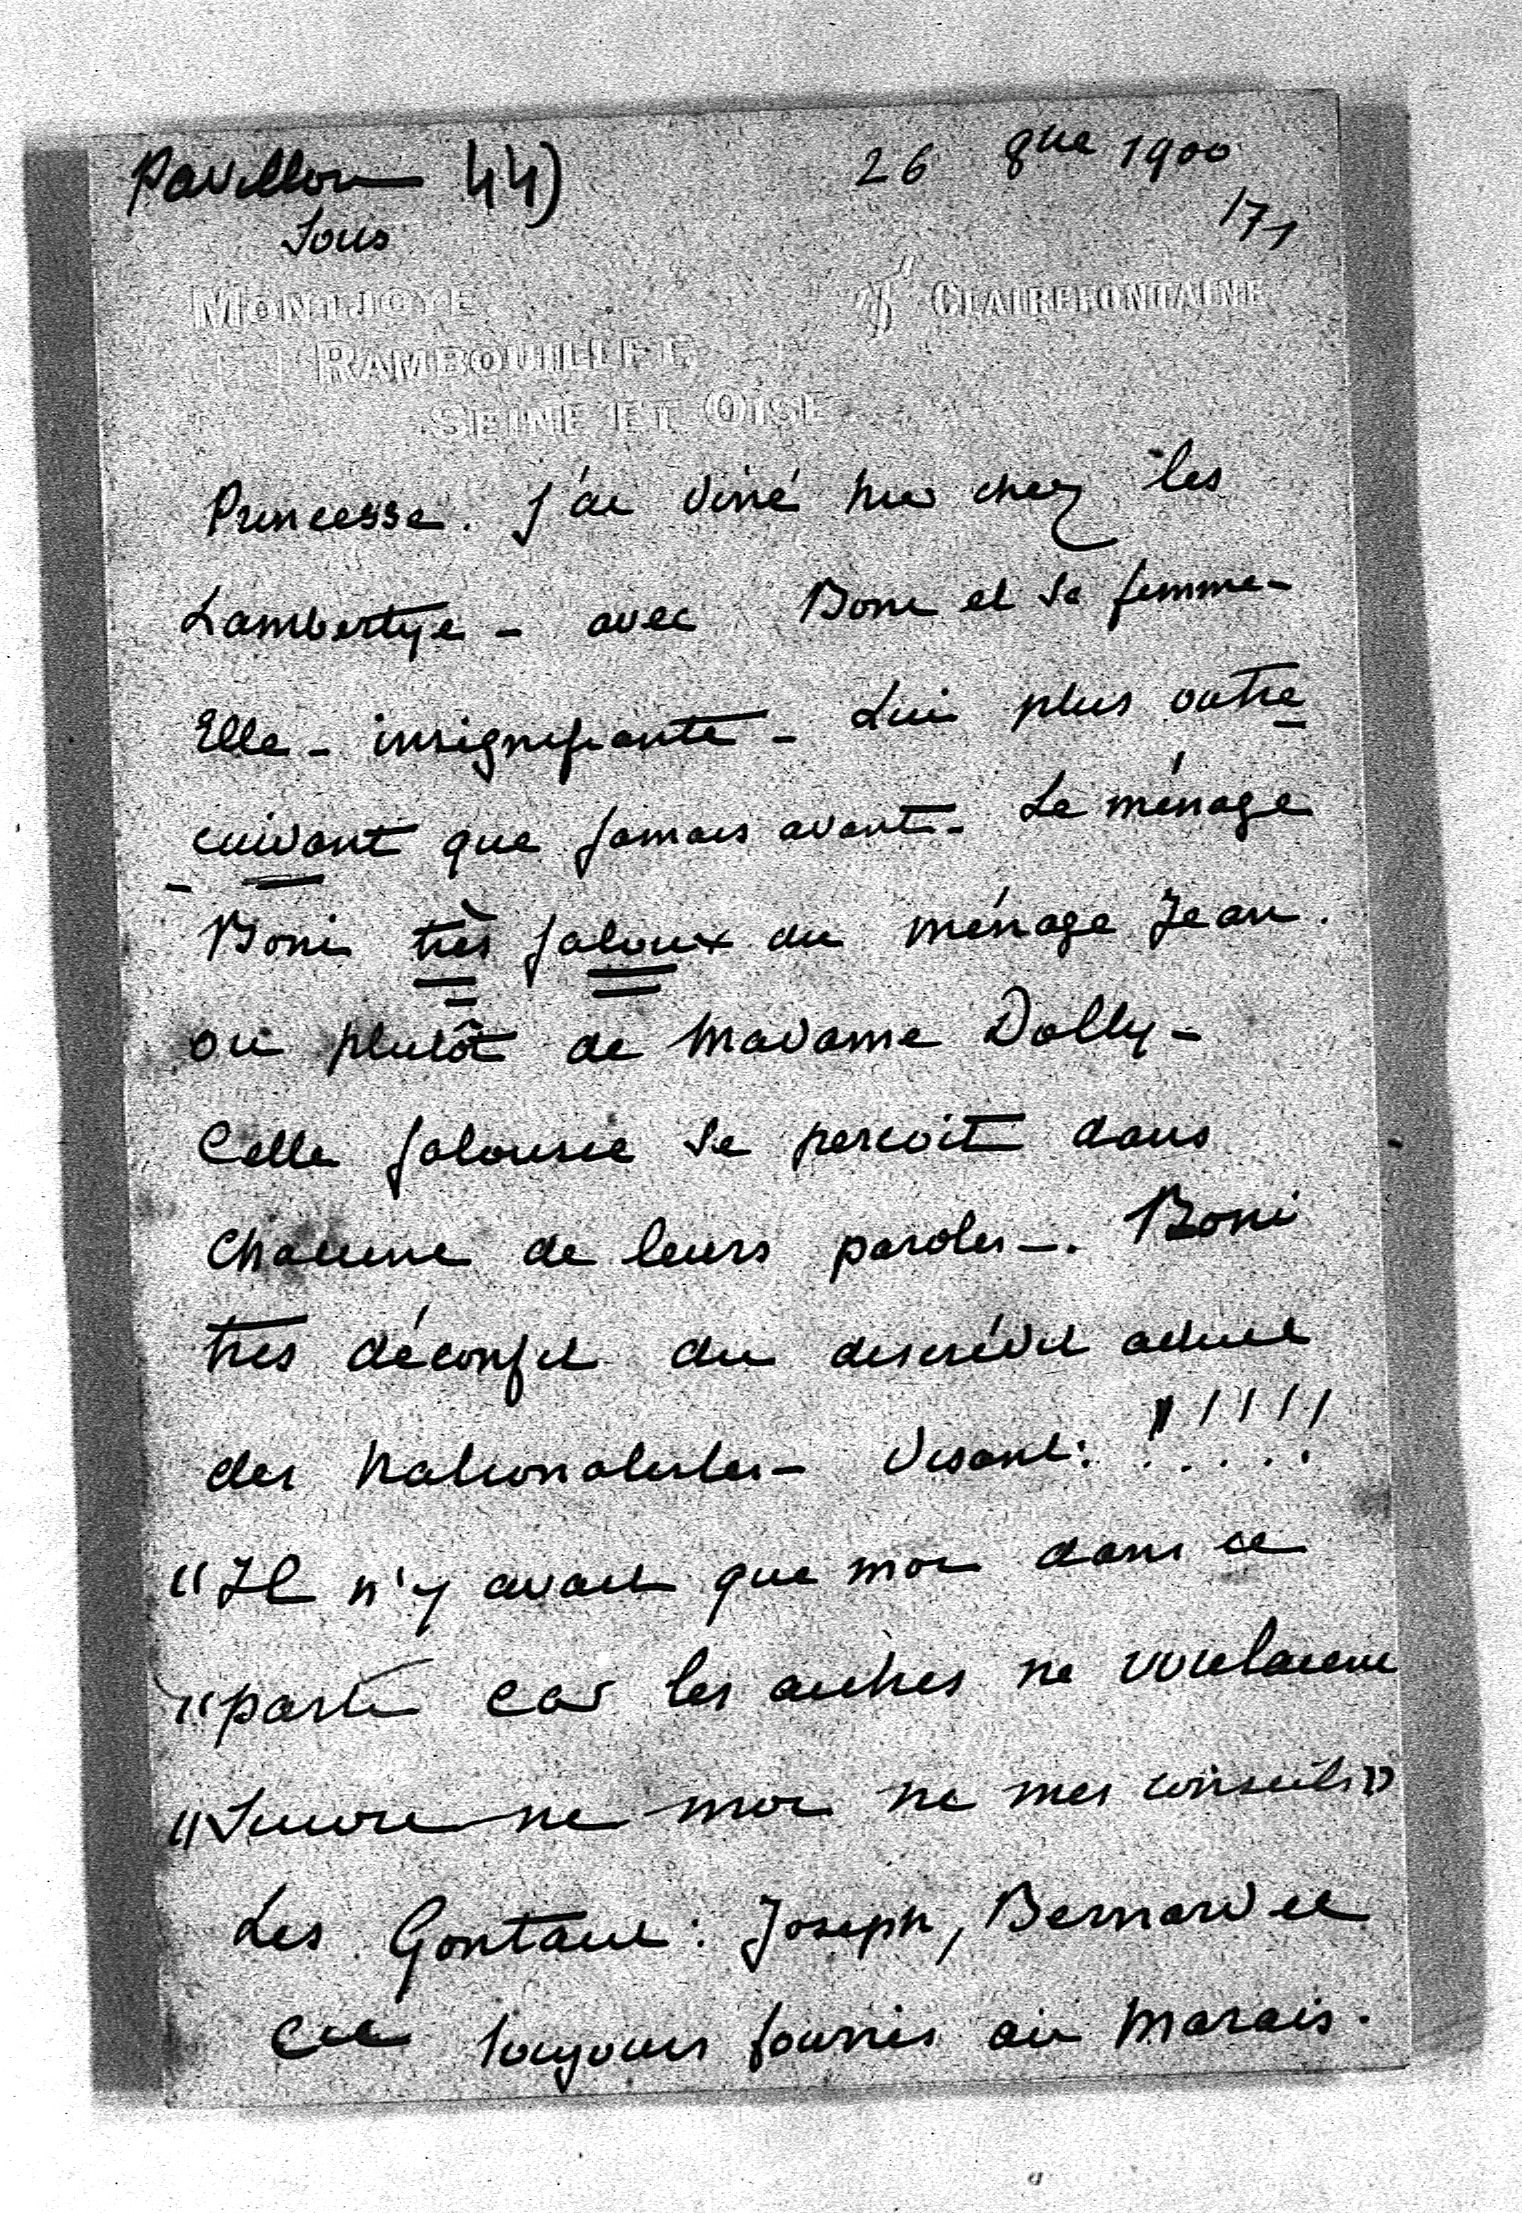 Pavillon 44)
26 8bre 1900
Sous
171
MONTJOYE
CLAIREFONTAINE
RAMBOUILLET,
SEINE ET OISE
Princesse. J'ai diné hier chez les
Lambertye - avec Boni et sa femme -
Elle - insignifiante - Lui plus outre
cuidant que jamais avant - Le ménage
Boni très jaloux du ménage Jean.
ou plutôt de Madame Dolly -
Cette jalousie se percoit dans
Chacune de leurs paroles -. Boni
très déconfit du discrédit actuel
des Nationalistes - disant: !!!!!
"Il n'y avait que moi dans ce
"parti car les autres ne voulaient
"Suivre ni moi ni mes conseils"
Les Gontaut: Joseph, Bernard et
Cie toujours fourrés au Marais.